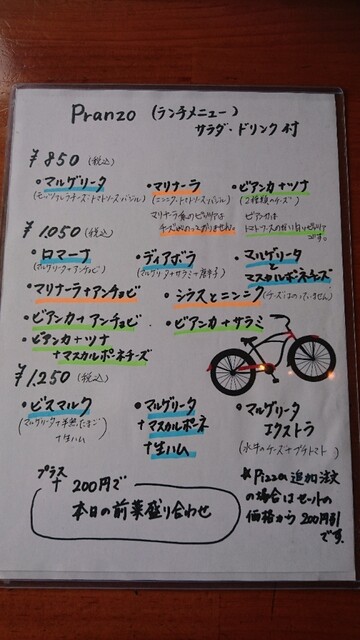 Pranzo (ランチメニュー)
サラダ・ドリンク付
¥850 (税込)
・マルゲリータ
(モッツァレラチーズ・トマトソース・バジル)
・マリナーラ
(ニンニク・トマトソース・バジル)
マリナーラ系のピッツァは
チーズがのっておりません。
・ビアンカ+ツナ
(2種類のチーズ)
ビアンカは
トマトソースのない白いピッツァ
です。
¥1,050 (税込)
・ロマーナ
(マルゲリータ+アンチョビ)
・ディアボラ
(マルゲリータ+サラミ+唐辛子)
・マルゲリータ
と
マスカルポーネチーズ
・マリナーラ+アンチョビ
・シラスとニンニク(チーズはのっていません)
・ビアンカ+アンチョビ
・ビアンカ+サラミ
・ビアンカ+ツナ
+マスカルポーネチーズ
¥1,250 (税込)
・ビスマルク
(マルゲリータ+半熟たまご
+生ハム)
・マルゲリータ
+マスカルポーネ
+生ハム
・マルゲリータ
エクストラ
(水牛のチーズ+プチトマト)
プラス
+200円で
本日の前菜盛り合わせ
*Pizzaの追加注文
の場合はセットの
価格から200円引
です。